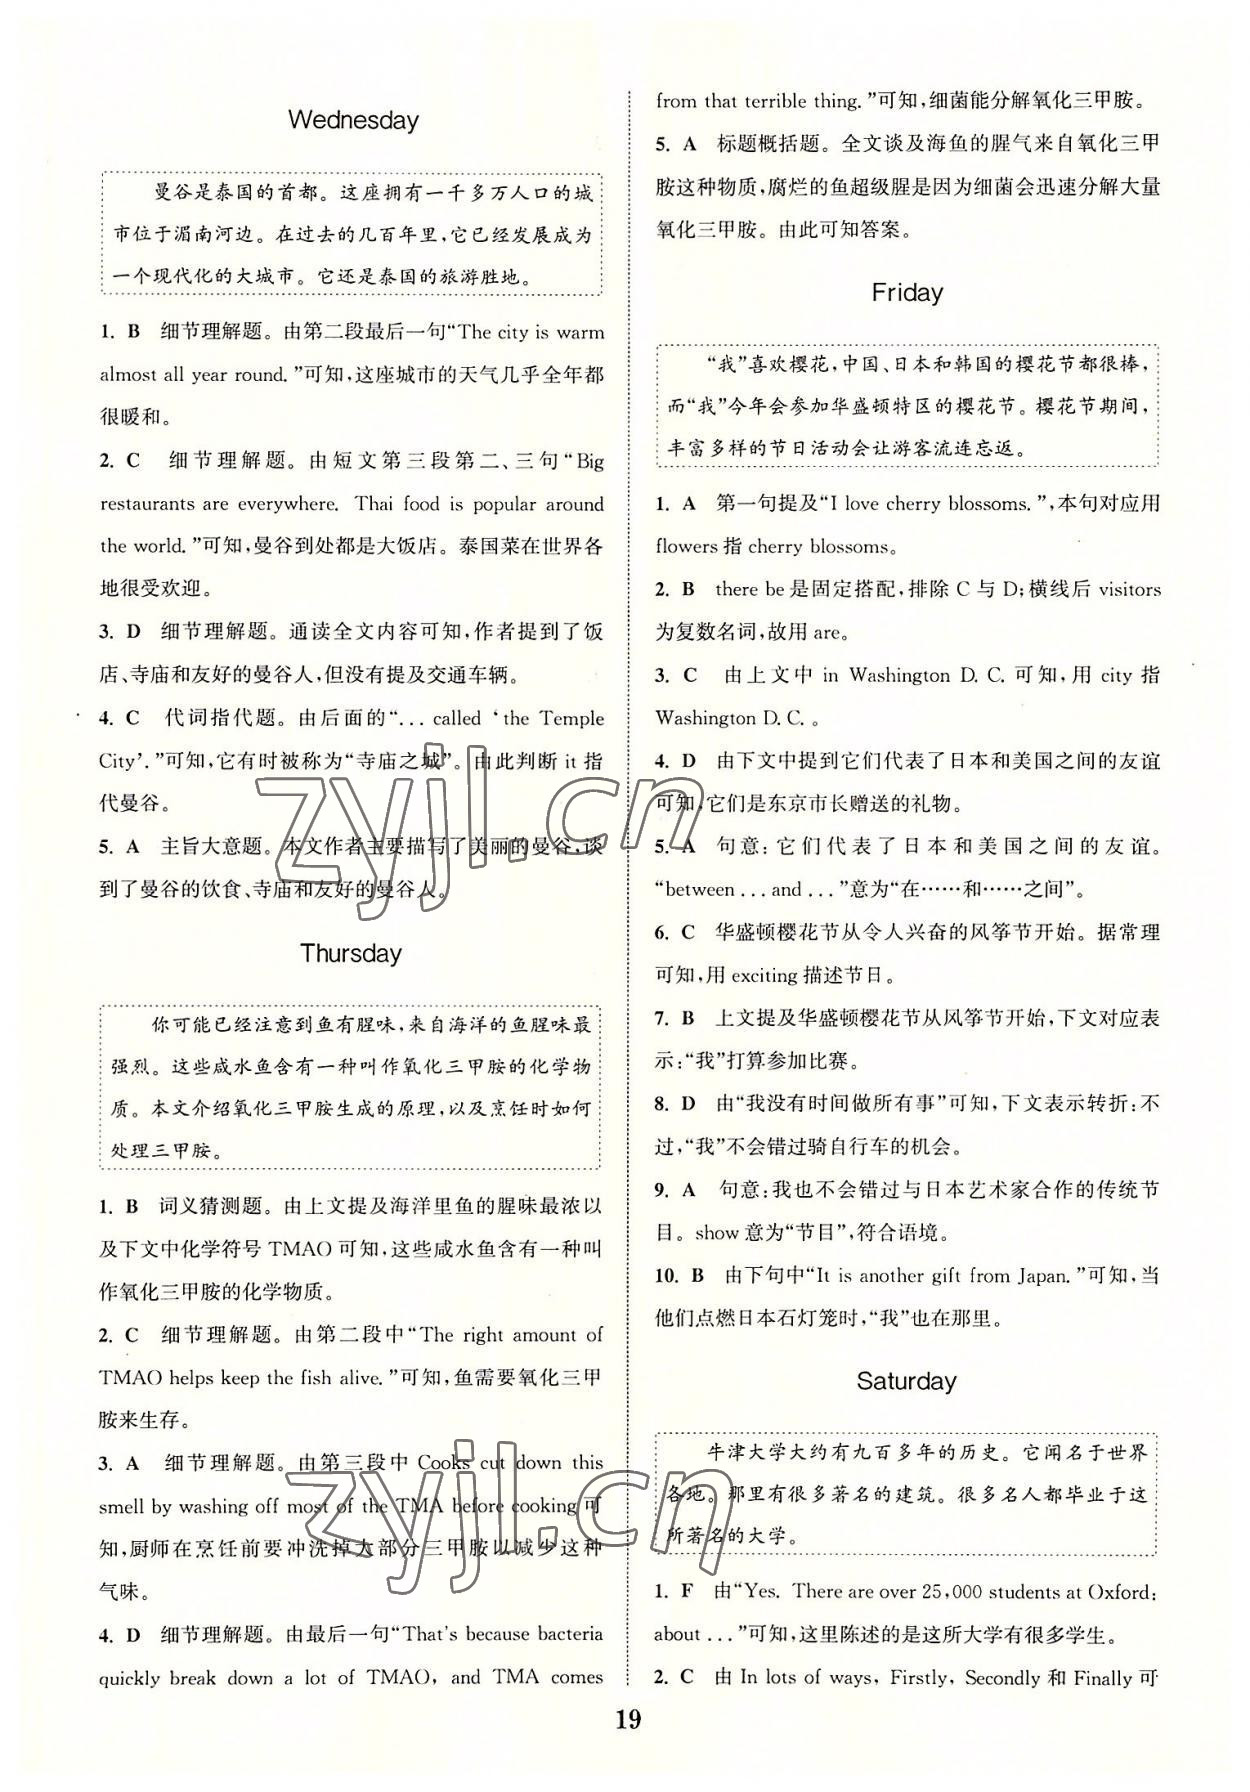 Wednesday
曼谷是泰国的首都。这座拥有一千多万人口的城
市位于湄南河边。在过去的几百年里,它已经发展成为
一个现代化的大城市。它还是泰国的旅游胜地。
1. B 细节理解题。由第二段最后一句“The city is warm
almost all year round. ”可知,这座城市的天气几乎全年都
很暖和。
2. C 细节理解题。由短文第三段第二、三句“Big
restaurants are everywhere. Thai food is popular around
the world. ”可知,曼谷到处都是大饭店。泰国菜在世界各
地很受欢迎。
3. D 细节理解题。通读全文内容可知,作者提到了饭
店、寺庙和友好的曼谷人,但没有提及交通车辆。
4. C 代词指代题。由后面的“... called ‘the Temple
City’. ”可知,它有时被称为“寺庙之城”。由此判断 it 指
代曼谷。
5. A 主旨大意题。本文作者主要描写了美丽的曼谷,谈
到了曼谷的饮食、寺庙和友好的曼谷人。
Thursday
你可能已经注意到鱼有腥味,来自海洋的鱼腥味最
强烈。这些咸水鱼含有一种叫作氧化三甲胺的化学物
质。本文介绍氧化三甲胺生成的原理,以及烹饪时如何
处理三甲胺。
1. B 词义猜测题。由上文提及海洋里鱼的腥味最浓以
及下文中化学符号 TMAO 可知,这些咸水鱼含有一种叫
作氧化三甲胺的化学物质。
2. C 细节理解题。由第二段中“The right amount of
TMAO helps keep the fish alive. ”可知,鱼需要氧化三甲
胺来生存。
3. A 细节理解题。由第三段中 Cooks cut down this
smell by washing off most of the TMA before cooking 可
知,厨师在烹饪前要冲洗掉大部分三甲胺以减少这种
气味。
4. D 细节理解题。由最后一句“That's because bacteria
quickly break down a lot of TMAO, and TMA comes
from that terrible thing. ”可知,细菌能分解氧化三甲胺。
5. A 标题概括题。全文谈及海鱼的腥气来自氧化三甲
胺这种物质,腐烂的鱼超级腥是因为细菌会迅速分解大量
氧化三甲胺。由此可知答案。
Friday
“我”喜欢樱花,中国、日本和韩国的樱花节都很棒,
而“我”今年会参加华盛顿特区的樱花节。樱花节期间,
丰富多样的节日活动会让游客流连忘返。
1. A 第一句提及“I love cherry blossoms. ”,本句对应用
flowers 指 cherry blossoms。
2. B there be 是固定搭配,排除 C 与 D;横线后 visitors
为复数名词,故用 are。
3. C 由上文中 in Washington D. C. 可知,用 city 指
Washington D. C. 。
4. D 由下文中提到它们代表了日本和美国之间的友谊
可知,它们是东京市长赠送的礼物。
5. A 句意:它们代表了日本和美国之间的友谊。
“between ... and ... ”意为“在……和……之间”。
6. C 华盛顿樱花节从令人兴奋的风筝节开始。据常理
可知,用 exciting 描述节日。
7. B 上文提及华盛顿樱花节从风筝节开始,下文对应表
示:“我”打算参加比赛。
8. D 由“我没有时间做所有事”可知,下文表示转折:不
过,“我”不会错过骑自行车的机会。
9. A 句意:我也不会错过与日本艺术家合作的传统节
目。show 意为“节目”,符合语境。
10. B 由下句中“It is another gift from Japan. ”可知,当
他们点燃日本石灯笼时,“我”也在那里。
Saturday
牛津大学大约有九百多年的历史。它闻名于世界
各地。那里有很多著名的建筑。很多名人都毕业于这
所著名的大学。
1. F 由“Yes. There are over 25,000 students at Oxford:
about ... ”可知,这里陈述的是这所大学有很多学生。
2. C 由 In lots of ways, Firstly, Secondly 和 Finally 可
19
zyjl.cn
zyjl.cn